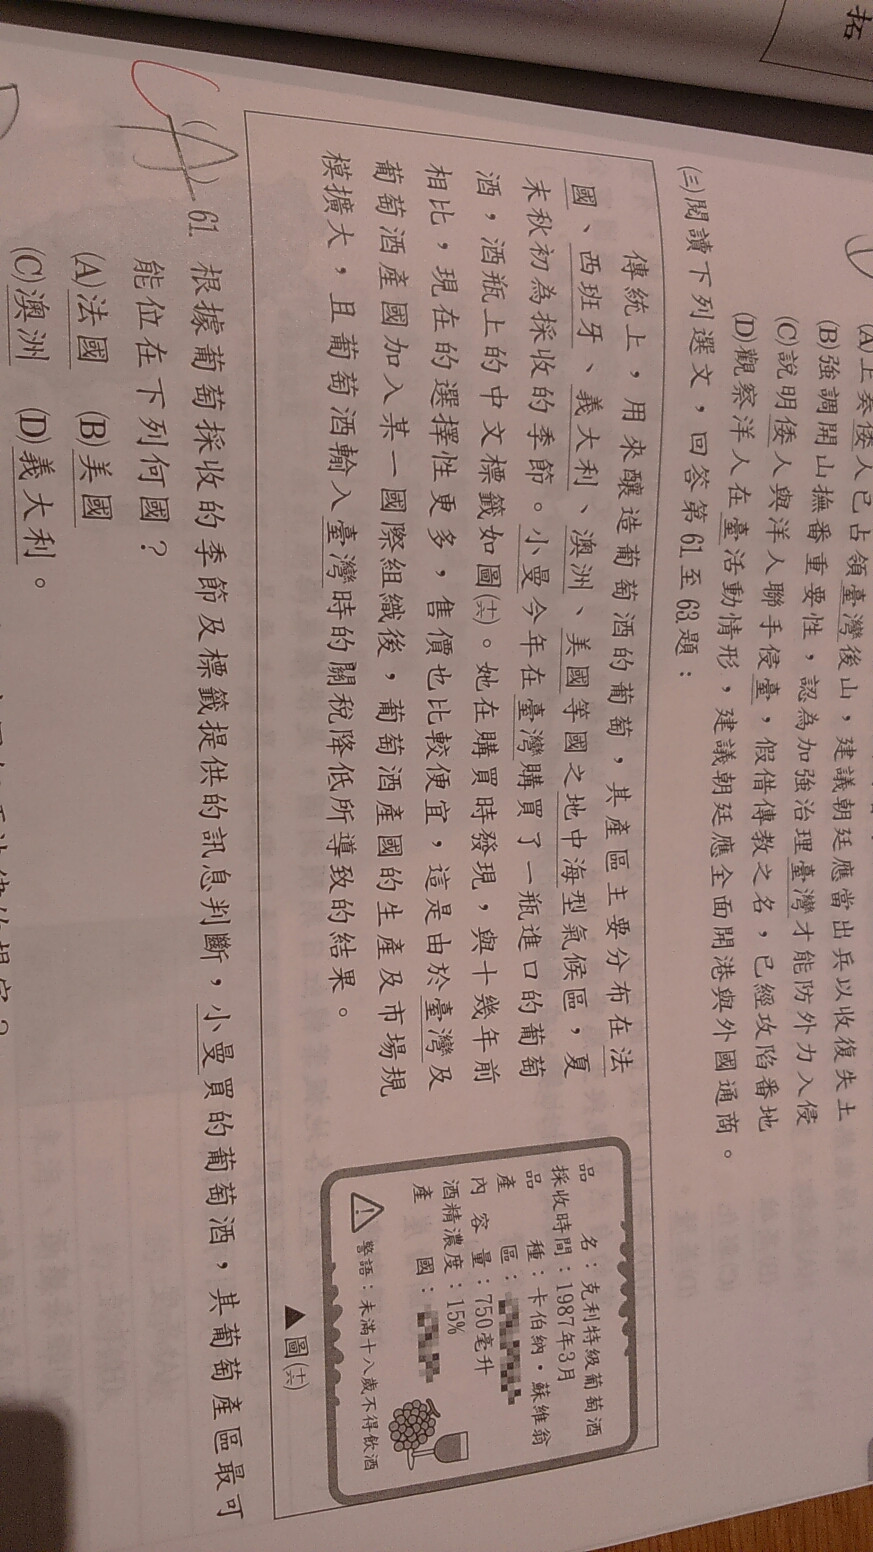 拓
(A)上奏倭人已占領臺灣後山，建議朝廷應當出兵以收復失土
(B)強調開山撫番重要性，認為加強治理臺灣才能防外力入侵
(C)說明倭人與洋人聯手侵臺，假借傳教之名，已經攻陷番地
(D)觀察洋人在臺活動情形，建議朝廷應全面開港與外國通商。
(三)閱讀下列選文，回答第61至63題：
傳統上，用來釀造葡萄酒的葡萄，其產區主要分布在法
國、西班牙、義大利、澳洲、美國等國之地中海型氣候區，夏
末秋初為採收的季節。小曼今年在臺灣購買了一瓶進口的葡萄
酒，酒瓶上的中文標籤如圖(六)。她在購買時發現，與十幾年前
相比，現在的選擇性更多，售價也比較便宜，這是由於臺灣及
葡萄酒產國加入某一國際組織後，葡萄酒產國的生產及市場規
模擴大，且葡萄酒輸入臺灣時的關稅降低所導致的結果。
品名：克利特級葡萄酒
採收時間：1987年3月
品種：卡伯納·蘇維翁
產區：
內容量：750毫升
酒精濃度：15%
產國：
警語：未滿十八歲不得飲酒
▲圖(六)
(A) 61. 根據葡萄採收的季節及標籤提供的訊息判斷，小曼買的葡萄酒，其葡萄產區最可
能位在下列何國？
(A)法國 (B)美國
(C)澳洲 (D)義大利。